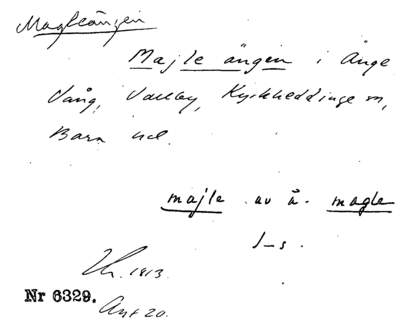 Magleängen
Majle ängen i Änge
Vång, Vallby, Kyrkheddinge sn,
Bara hd.
majle av ä. magle
J-s.
1813.
Nr 6329.
Ant 20.